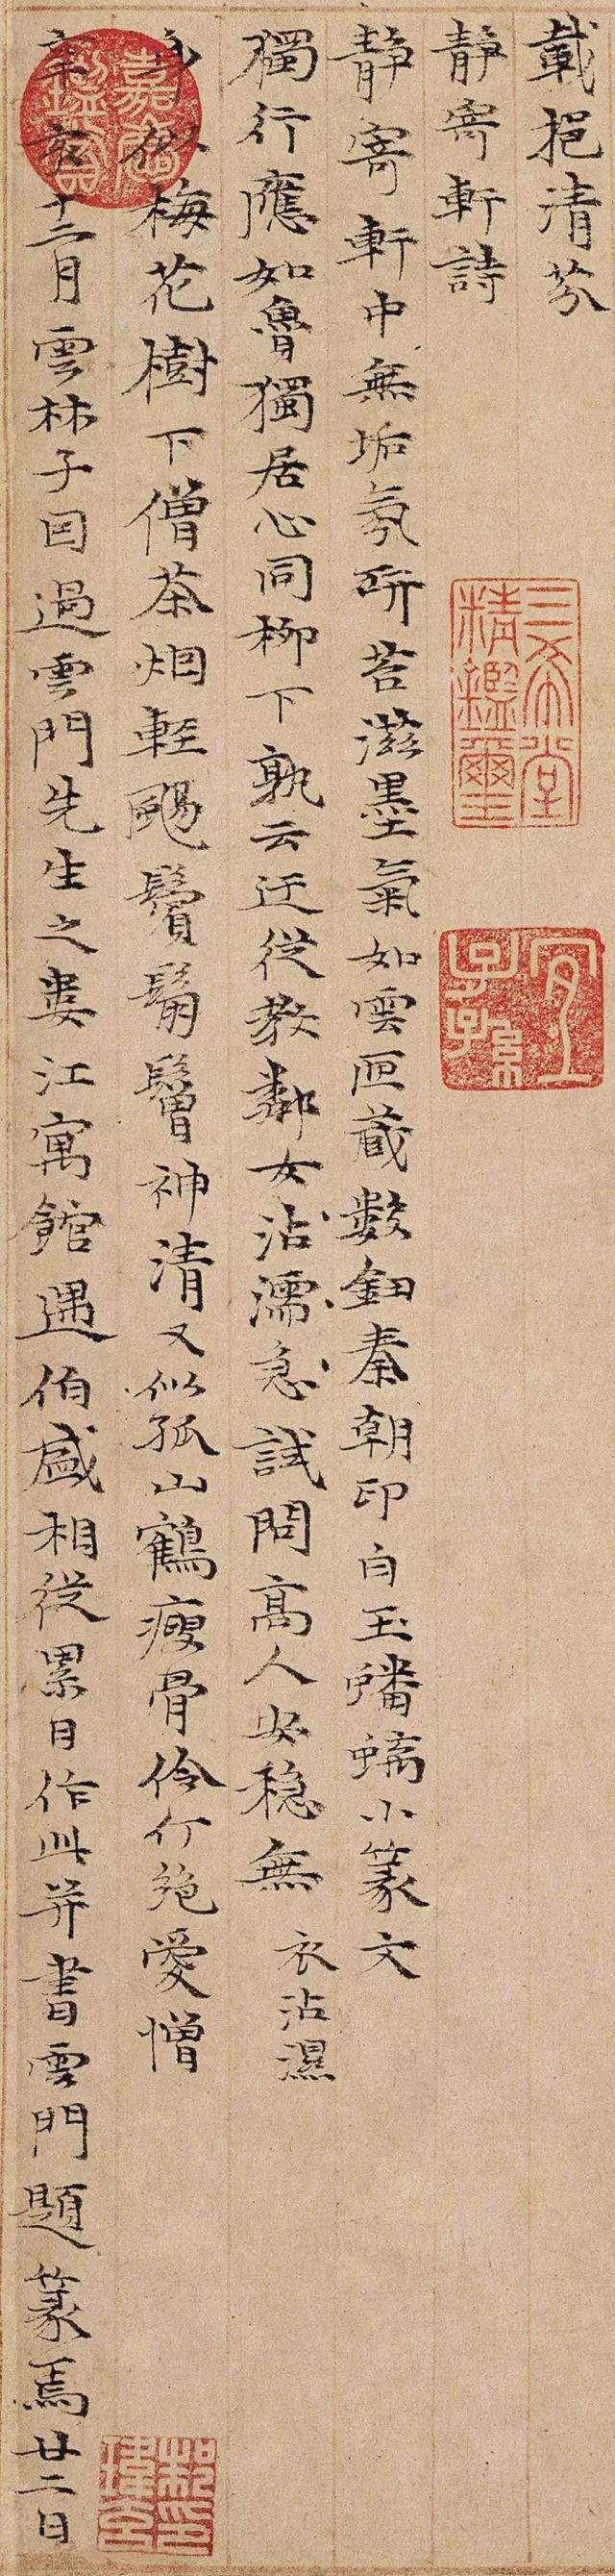 載挹清芬
靜寄軒詩
靜寄軒中無垢氛研苔滋墨氣如雲匣藏數鈕秦朝印白玉蟠螭小篆文
獨行應如魯獨居心同柳下孰云迂從教鄰女沾濡急試問高人安穩無 衣沾濕
身似梅花樹下僧茶烟輕颺鬢鬅鬙神清又似孤山鶴瘦骨伶仃絕愛憎
辛亥十二月雲林子因過雲門先生之婁江寓館遇伯盛相從累日作此并書雲門題篆焉廿二日
三希堂精鑑璽
宜子孫
嘉慶鑑賞